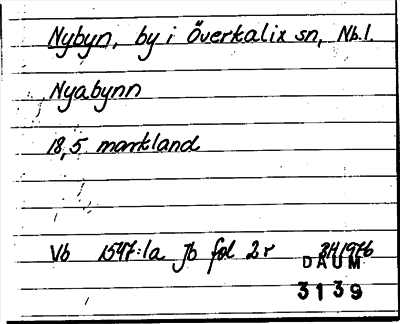 Nybyn, by i Överkalix sn, Nb.l.
Nyabynn
18,5 markland
Vb 1547:1a Jb fol 2r
DAUM
3139